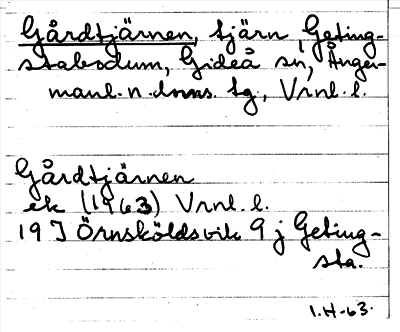 Gårdtjärnen, tjärn, Geting-
stabodum, Gideå sn, Ånger-
manl. n. doms. tg., Vrnl. l.
Gårdtjärnen
ek (1963) Vrnl. l.
19 J Örnsköldsvik 9 j Geting-
sta.
1.H-63.